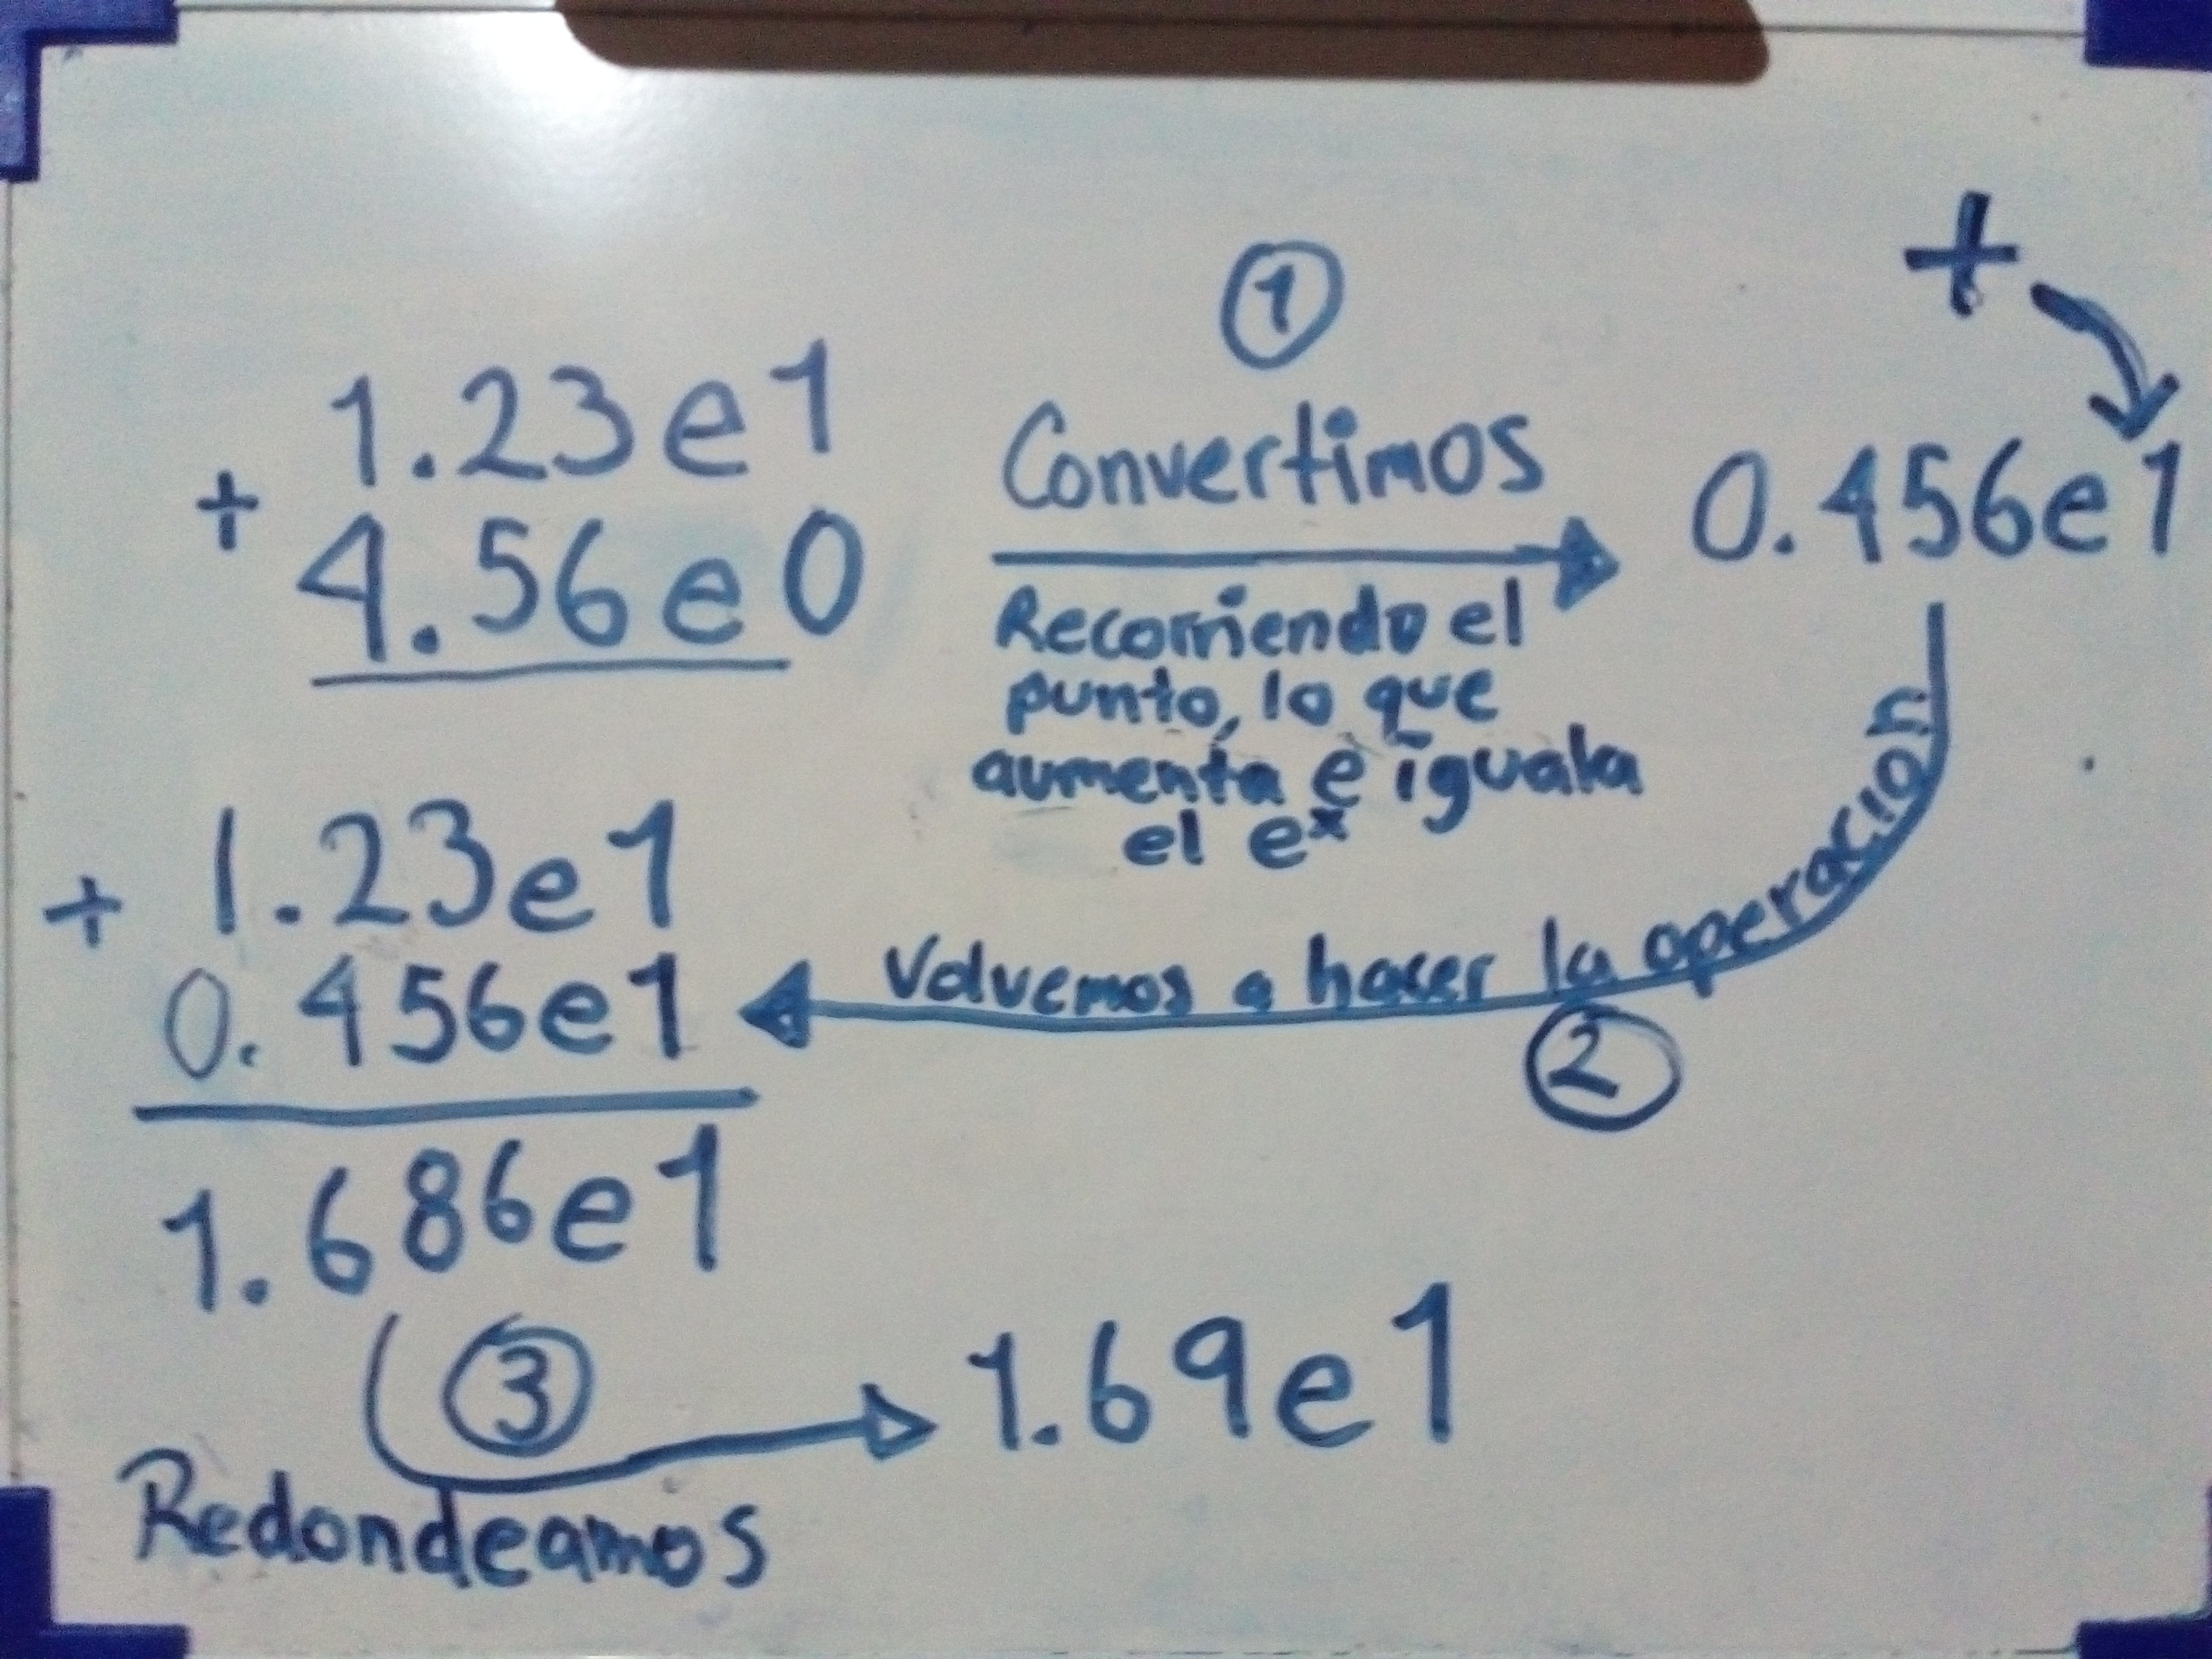 1.23e1
+ 4.56e0
①
Convertimos
Recorriendo el
punto, lo que
aumenta e iguala
el eˣ
+
0.456e1
Volvemos a hacer la operación
②
+ 1.23e1
0.456e1
1.686e1
③
Redondeamos
1.69e1